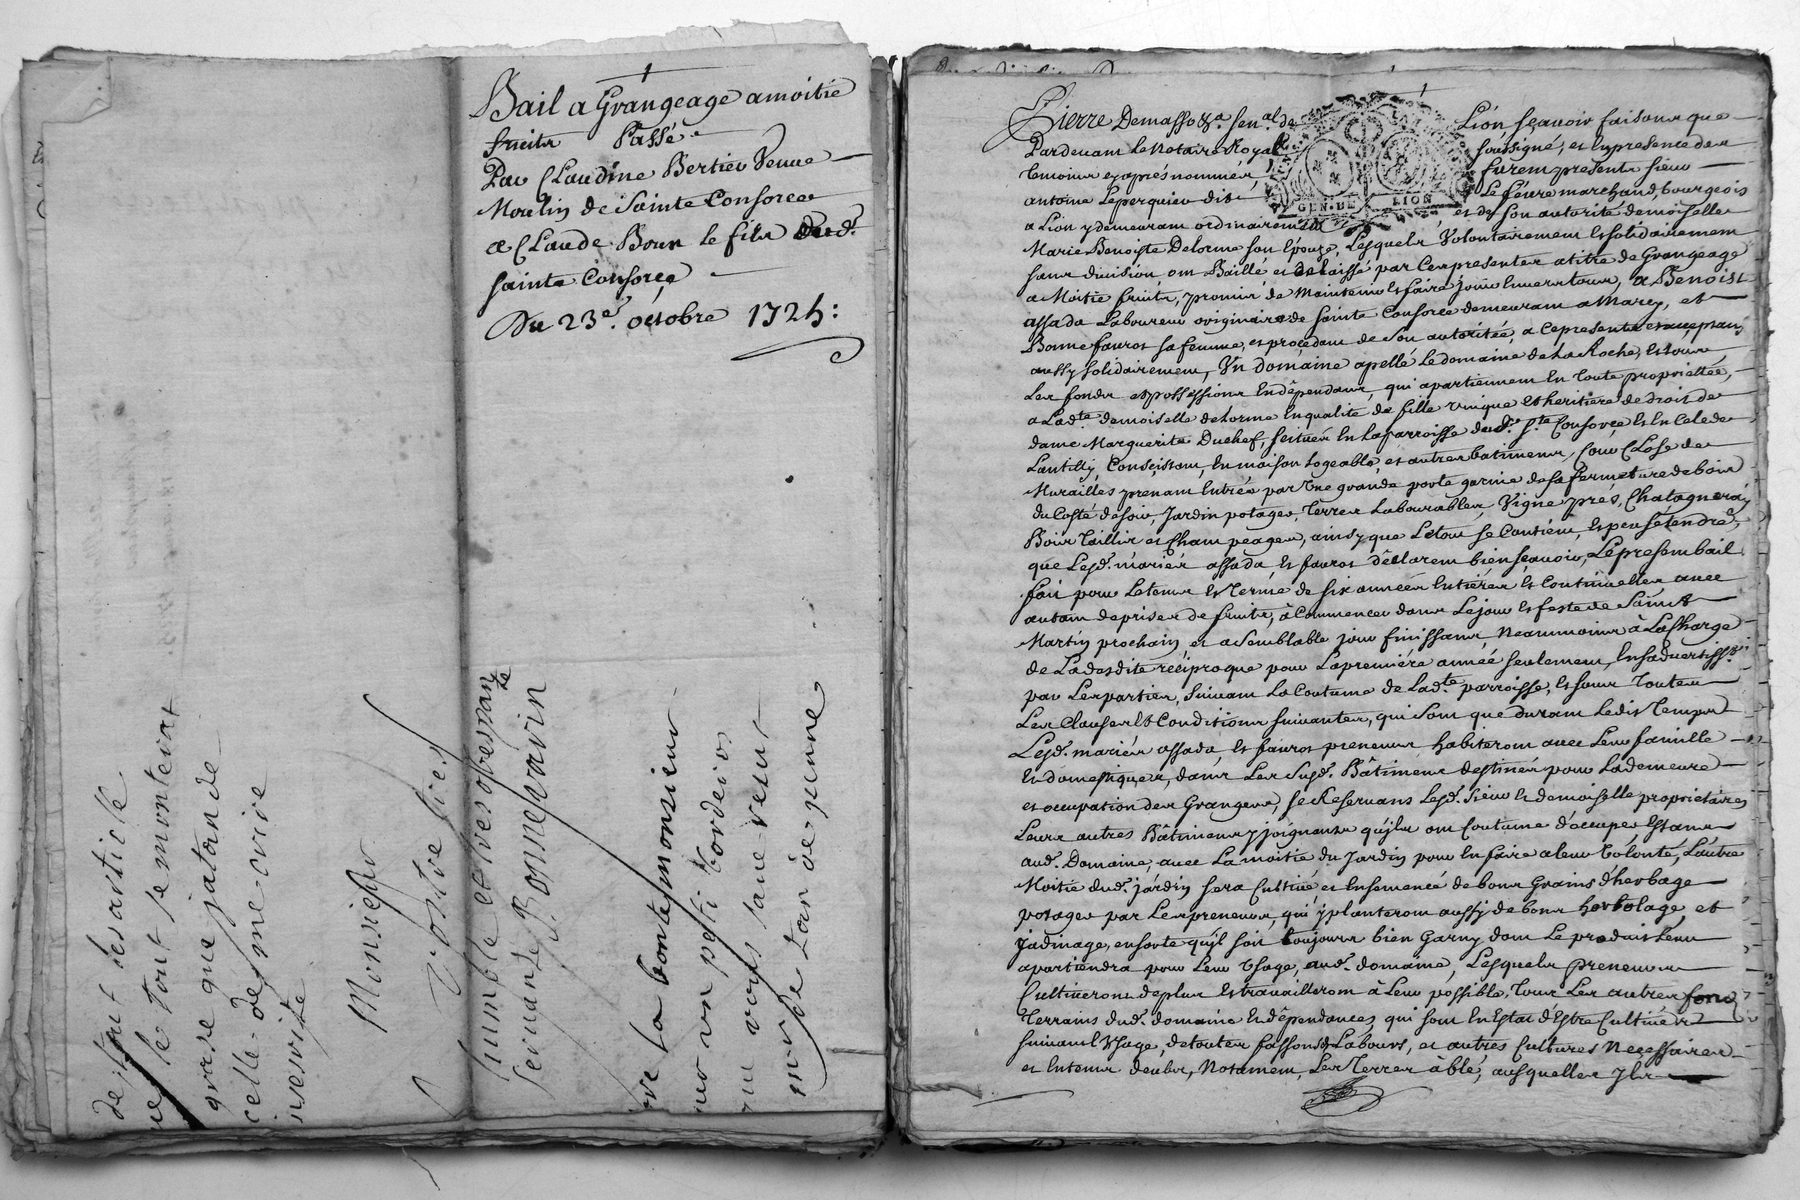 Bail a Grangeage amoitié
fruits Passé
Par Claudine Bertier Veuve
Moulin de Sainte Consorce
a Claude Boun le fils dud.
Sainte Consorce
Du 23e. octobre 1725:
de tout les article
le tout se monteira
que jatande
celle de me crire
inscriste
Monsieur
Vostre tres
humble et tres obeissante
servande Bonnevavin
la bonte monsieur
un peti bordeio
vous sane venir
de tan de penne
Pierre Demasso &a. sen.al de Lion sçavoir faisons que
Pardevant le Notaire Royal soussigné, et en presence des
temoins ey aprés nommés, furem presents sieur
antoine Leperquier dit Le feure marchand, bourgeois
a Lion y demeurant ordinairement et de son autorité demoiselle
Marie Benoiste Delorme son Epouze, Lesquels Volontairement et solidairement
sans division ont Baillé et delaissé par ces presentes a titre de Grangeage
a Moitié fruits, promis de Maintenir et faire jouir envers tous, a Benoist
assada Laboureur originaire de sainte Consorce demeurant a Marcy, et
Bonne fauros sa femme, et procedant de son autorité, a ce presents et acceptans
aussy solidairement, Un domaine apellé Le domaine de La Roche, et tous
Les fonds et possessions En dépendans, qui apartiennent En Toute proprietée,
a Lad.te demoiselle delorme En qualité de fille unique et heritiere de droit de
dame Marguerite Duchef, scitués En La parroisse dud. S.te Consorce et En Celle de
Lentilly, Consistant, En maison Logeable, et autres batiments, Cour Close de
Murailles prenant Entrée par Une grande porte garnie de sa fermeture de bois
du Costé de soir, Jardin potager, Terres Labourables, Vigne, prés, Chatagneray
Bois Taillis et Champeages, ainsy que Le tout se Contient, et peut s'etendre,
que Lesd. mariés assada et fauros déclarent bien sçavoir, Le present bail
fait pour Le tems et Terme de six années Entieres et Continuelles avec
autant de prises de fruits, à Commencer dans Le jour et feste de Saint
Martin prochain, et a semblable jour finissant, Neanmoins à La Charge
de La desdite réciproque pour La premiére année seulement, En s'advertissant
par Les parties, suivant La Coutume de Lad.te parroisse, et sous Toutes
Les Clauses et Conditions suivantes, qui sont que durant Ledit Temps
Lesd. mariés assada, et fauros preneurs habiteront avec Leur famille
En domestiques, dans Les susd. Bâtiments destinés pour La demeure
et occupation des Grangers, se Reservans Lesd. sieur et demoiselle proprietaires
Leurs autres Bâtiments y joignans qu'ils ont Coutume d'occuper Etans
aud. Domaine, avec La moitié du Jardin pour En faire a leur Volonté, L'autre
Moitié dud. jardin sera Cultivé et Ensemencé de bons Grains d'herbage
potager par Les preneurs, qui y planteront aussy de bons hortolage, et
jadinage, en sorte qu'il soit toujours bien Garny dont Le produit Leur
apartiendra pour Leur Usage, aud. domaine, Lesquels preneurs
Cultiveront de plus et travailleront à Leur possible, Tous Les autres fonds
Terrains dud. domaine En dépendances, qui sont En Estat d'Estre Cultivés
suivant L'Usage, de toutes fassons de Labours, et autres Cultures Necessaires
et En tems deubs, Notament, Les Terres à blé, ausquelles Ils
GEN. DE LION